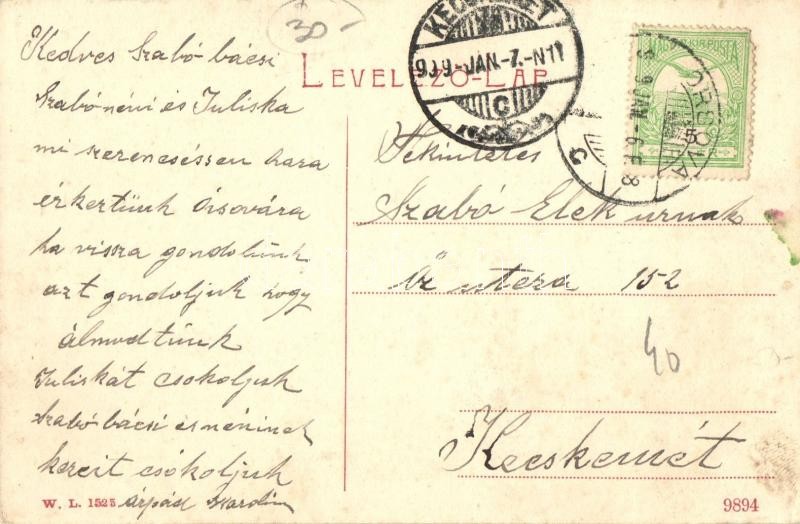 30
Kedves Szabó bácsi
Szabó néni és Juliska
mi szerencséssen haza
érkertünk Orsovára
ha vissza gondolunk
azt gondoljuk hogy
álmodtunk
Juliskát csokoljuk
Szabó bácsi és néninek
kezeit csókoljuk
Árpád
W. L. 1525
LEVELEZŐ-LAP
KECSKEMÉT
909-JAN.-7.-N11
C
MAGYAR KIR. POSTA
5
ORSOVA
Tekintetes
Szabó Elek urnak
Őz utcza 152
40
Kecskemét
9894